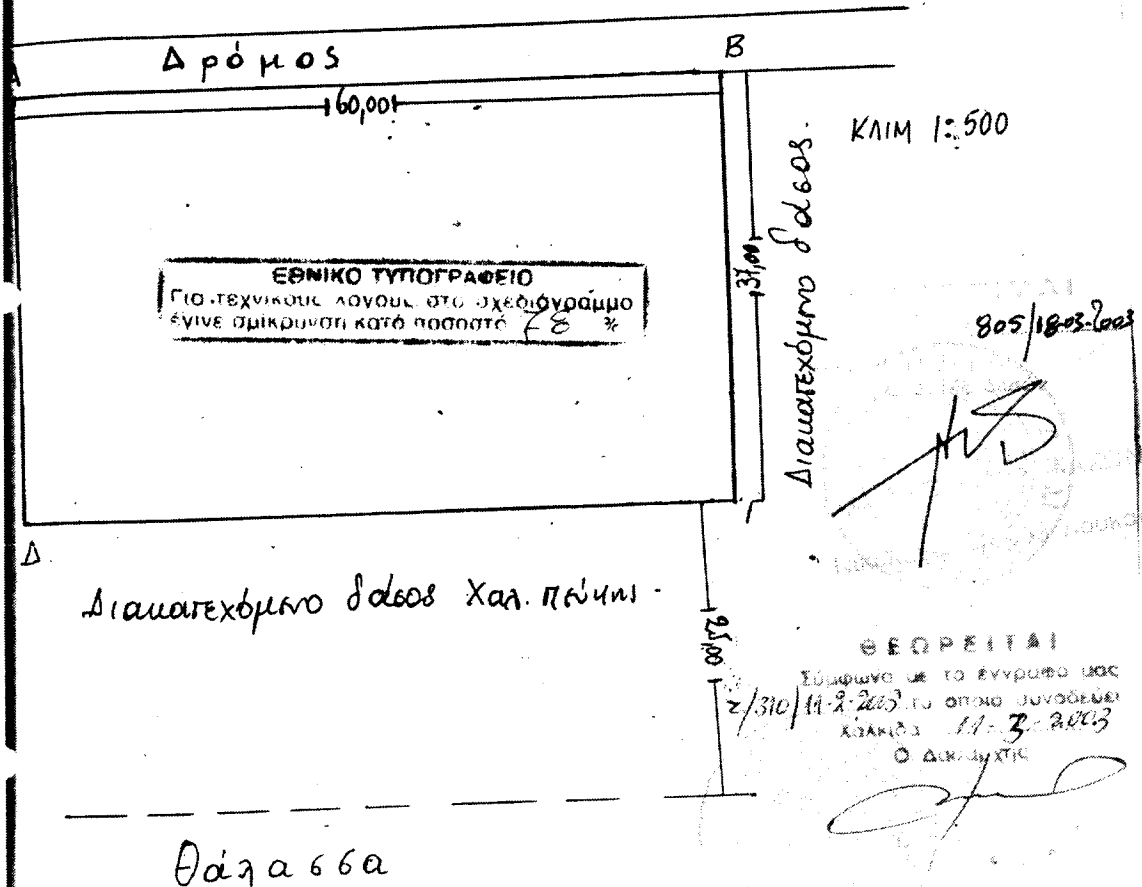 Δρόμος
Α
Β
60,00
ΚΛΙΜ 1:500
Διακατεχόμενο δάσος.
37,00
ΕΘΝΙΚΟ ΤΥΠΟΓΡΑΦΕΙΟ
Για τεχνικούς λόγους στο σχεδιάγραμμα
έγινε σμίκρυνση κατά ποσοστό 78 %
805/18-03-2003
Γ
Δ
Διακατεχόμενο δάσος Χαλ. πεύκης.
25,00
ΘΕΩΡΕΙΤΑΙ
Σύμφωνα με το έγγραφό μας
2/310/11-2-2003 το οποίο συνοδεύει
Χαλκίδα 11-3-2003
Ο Δασάρχης
Θάλασσα